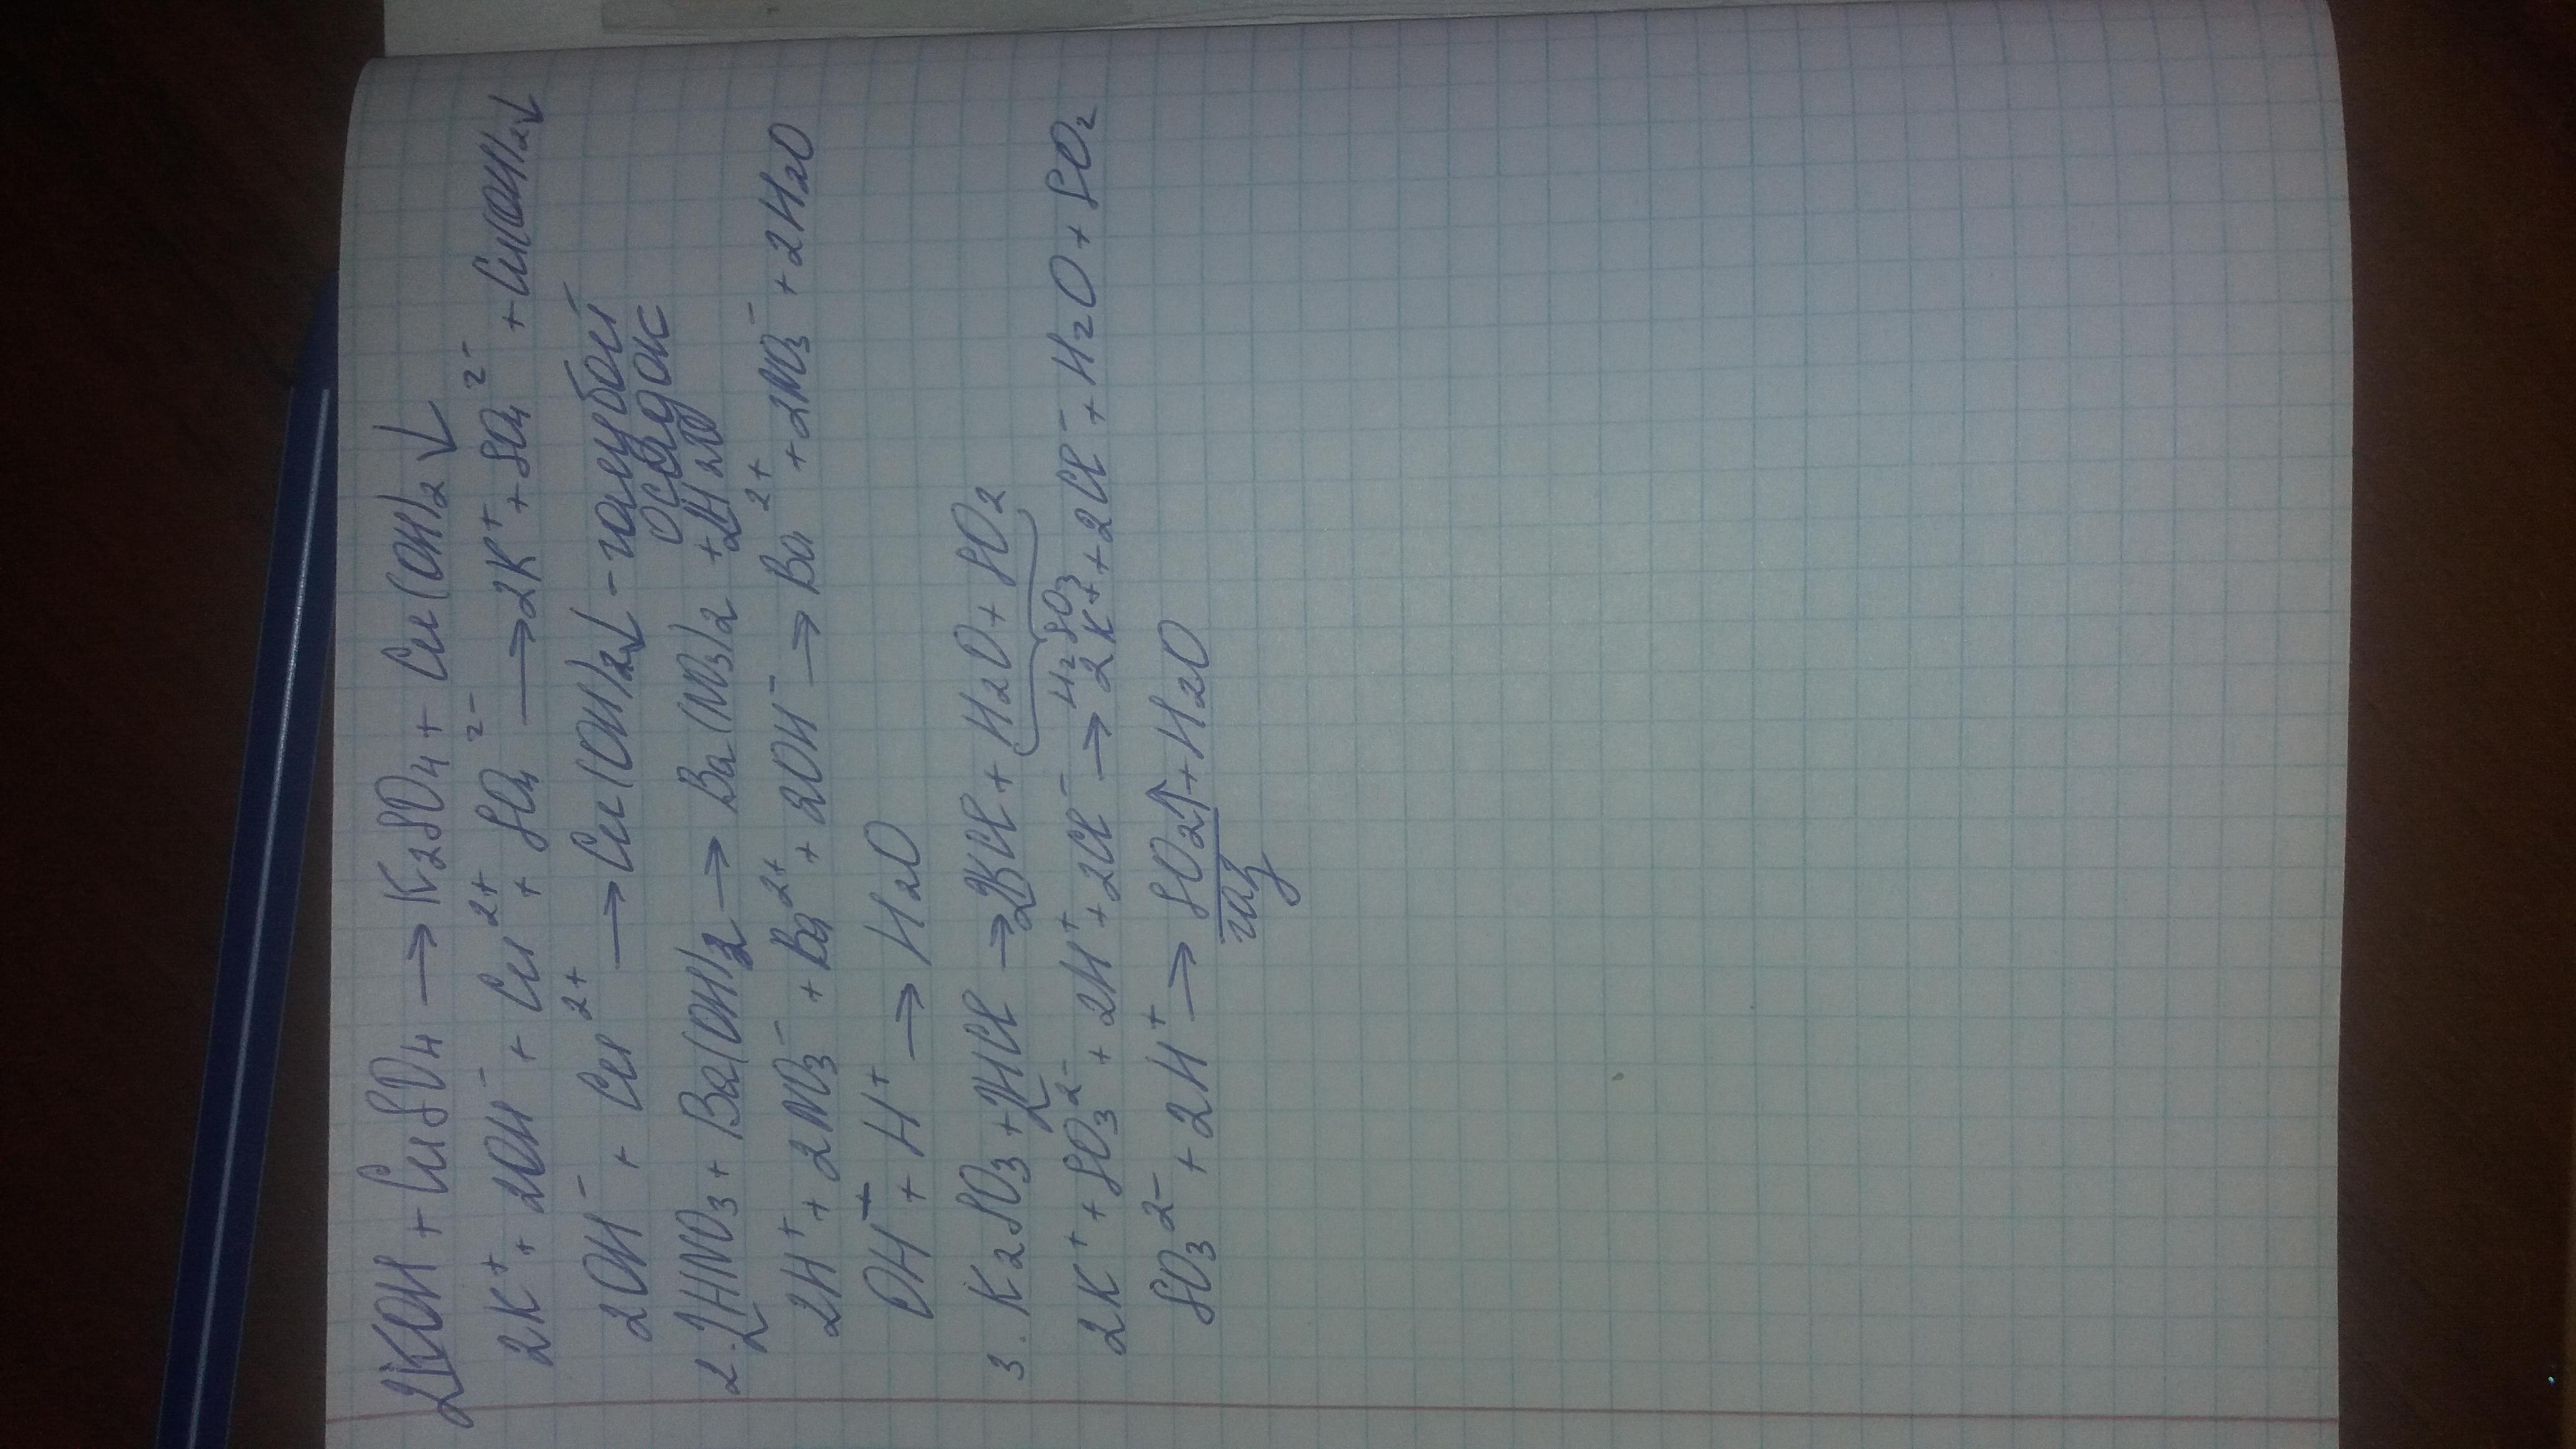 2KOH + CuSO₄ → K₂SO₄ + Cu(OH)₂↓
2K⁺ + 2OH⁻ + Cu²⁺ + SO₄²⁻ → 2K⁺ + SO₄²⁻ + Cu(OH)₂↓
2OH⁻ + Cu²⁺ → Cu(OH)₂↓ - голубой
осадок
2. 2HNO₃ + Ba(OH)₂ → Ba(NO₃)₂ + 2H₂O
2H⁺ + 2NO₃⁻ + Ba²⁺ + 2OH⁻ → Ba²⁺ + 2NO₃⁻ + 2H₂O
OH⁻ + H⁺ → H₂O
3. K₂SO₃ + 2HCl → 2KCl + H₂O + SO₂
H₂SO₃
2K⁺ + SO₃²⁻ + 2H⁺ + 2Cl⁻ → 2K⁺ + 2Cl⁻ + H₂O + SO₂
SO₃²⁻ + 2H⁺ → SO₂↑ + H₂O
газ